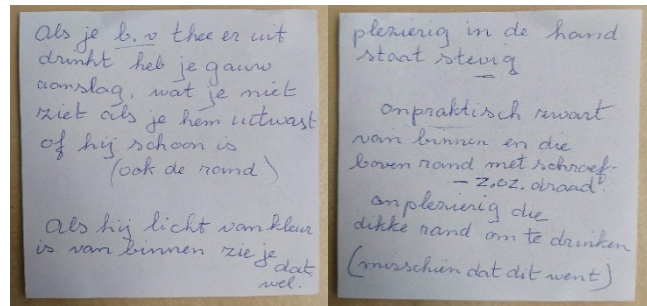 Als je b.v thee er uit
drinkt heb je gauw
aanslag, wat je niet
ziet als je hem uitwast
of hij schoon is
(ook de rand)
Als hij licht van kleur
is van binnen zie je
dat
wel.
plezierig in de hand
staat stevig
onpraktisch zwart
van binnen en die
boven rand met schroef-
- z.oz. draad!
onplezierig die
dikke rand om te drinken
(misschien dat dit went)